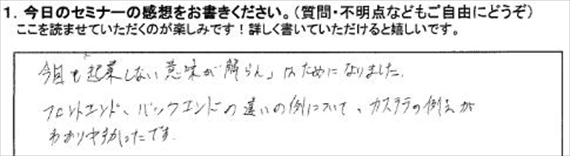 1. 今日のセミナーの感想をお書きください。(質問・不明点などもご自由にどうぞ)
ここを読ませていただくのが楽しみです！詳しく書いていただけると嬉しいです。
今回も起業しない意味が「解らん」はためになりました.
フロントエンド、バックエンドの違いの例について、カステラの例えが
わかりやすかったです.